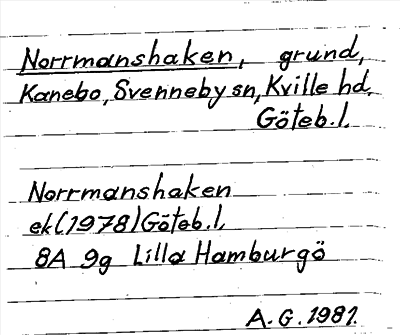 Norrmanshaken, grund,
Kanebo, Svenneby sn, Kville hd.
Göteb. l.
Norrmanshaken
ek (1978) Göteb. l.
8A 9g Lilla Hamburgö
A. G. 1981.